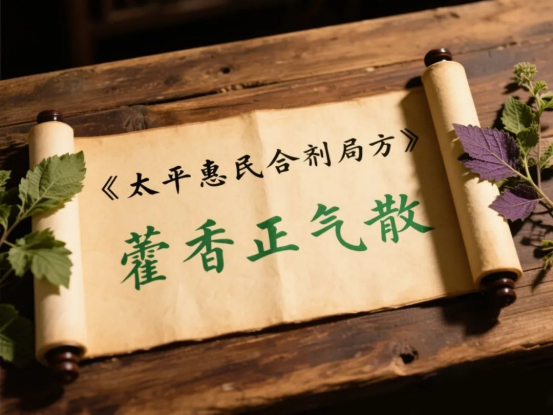 《太平惠民合剂局方》
藿香正气散